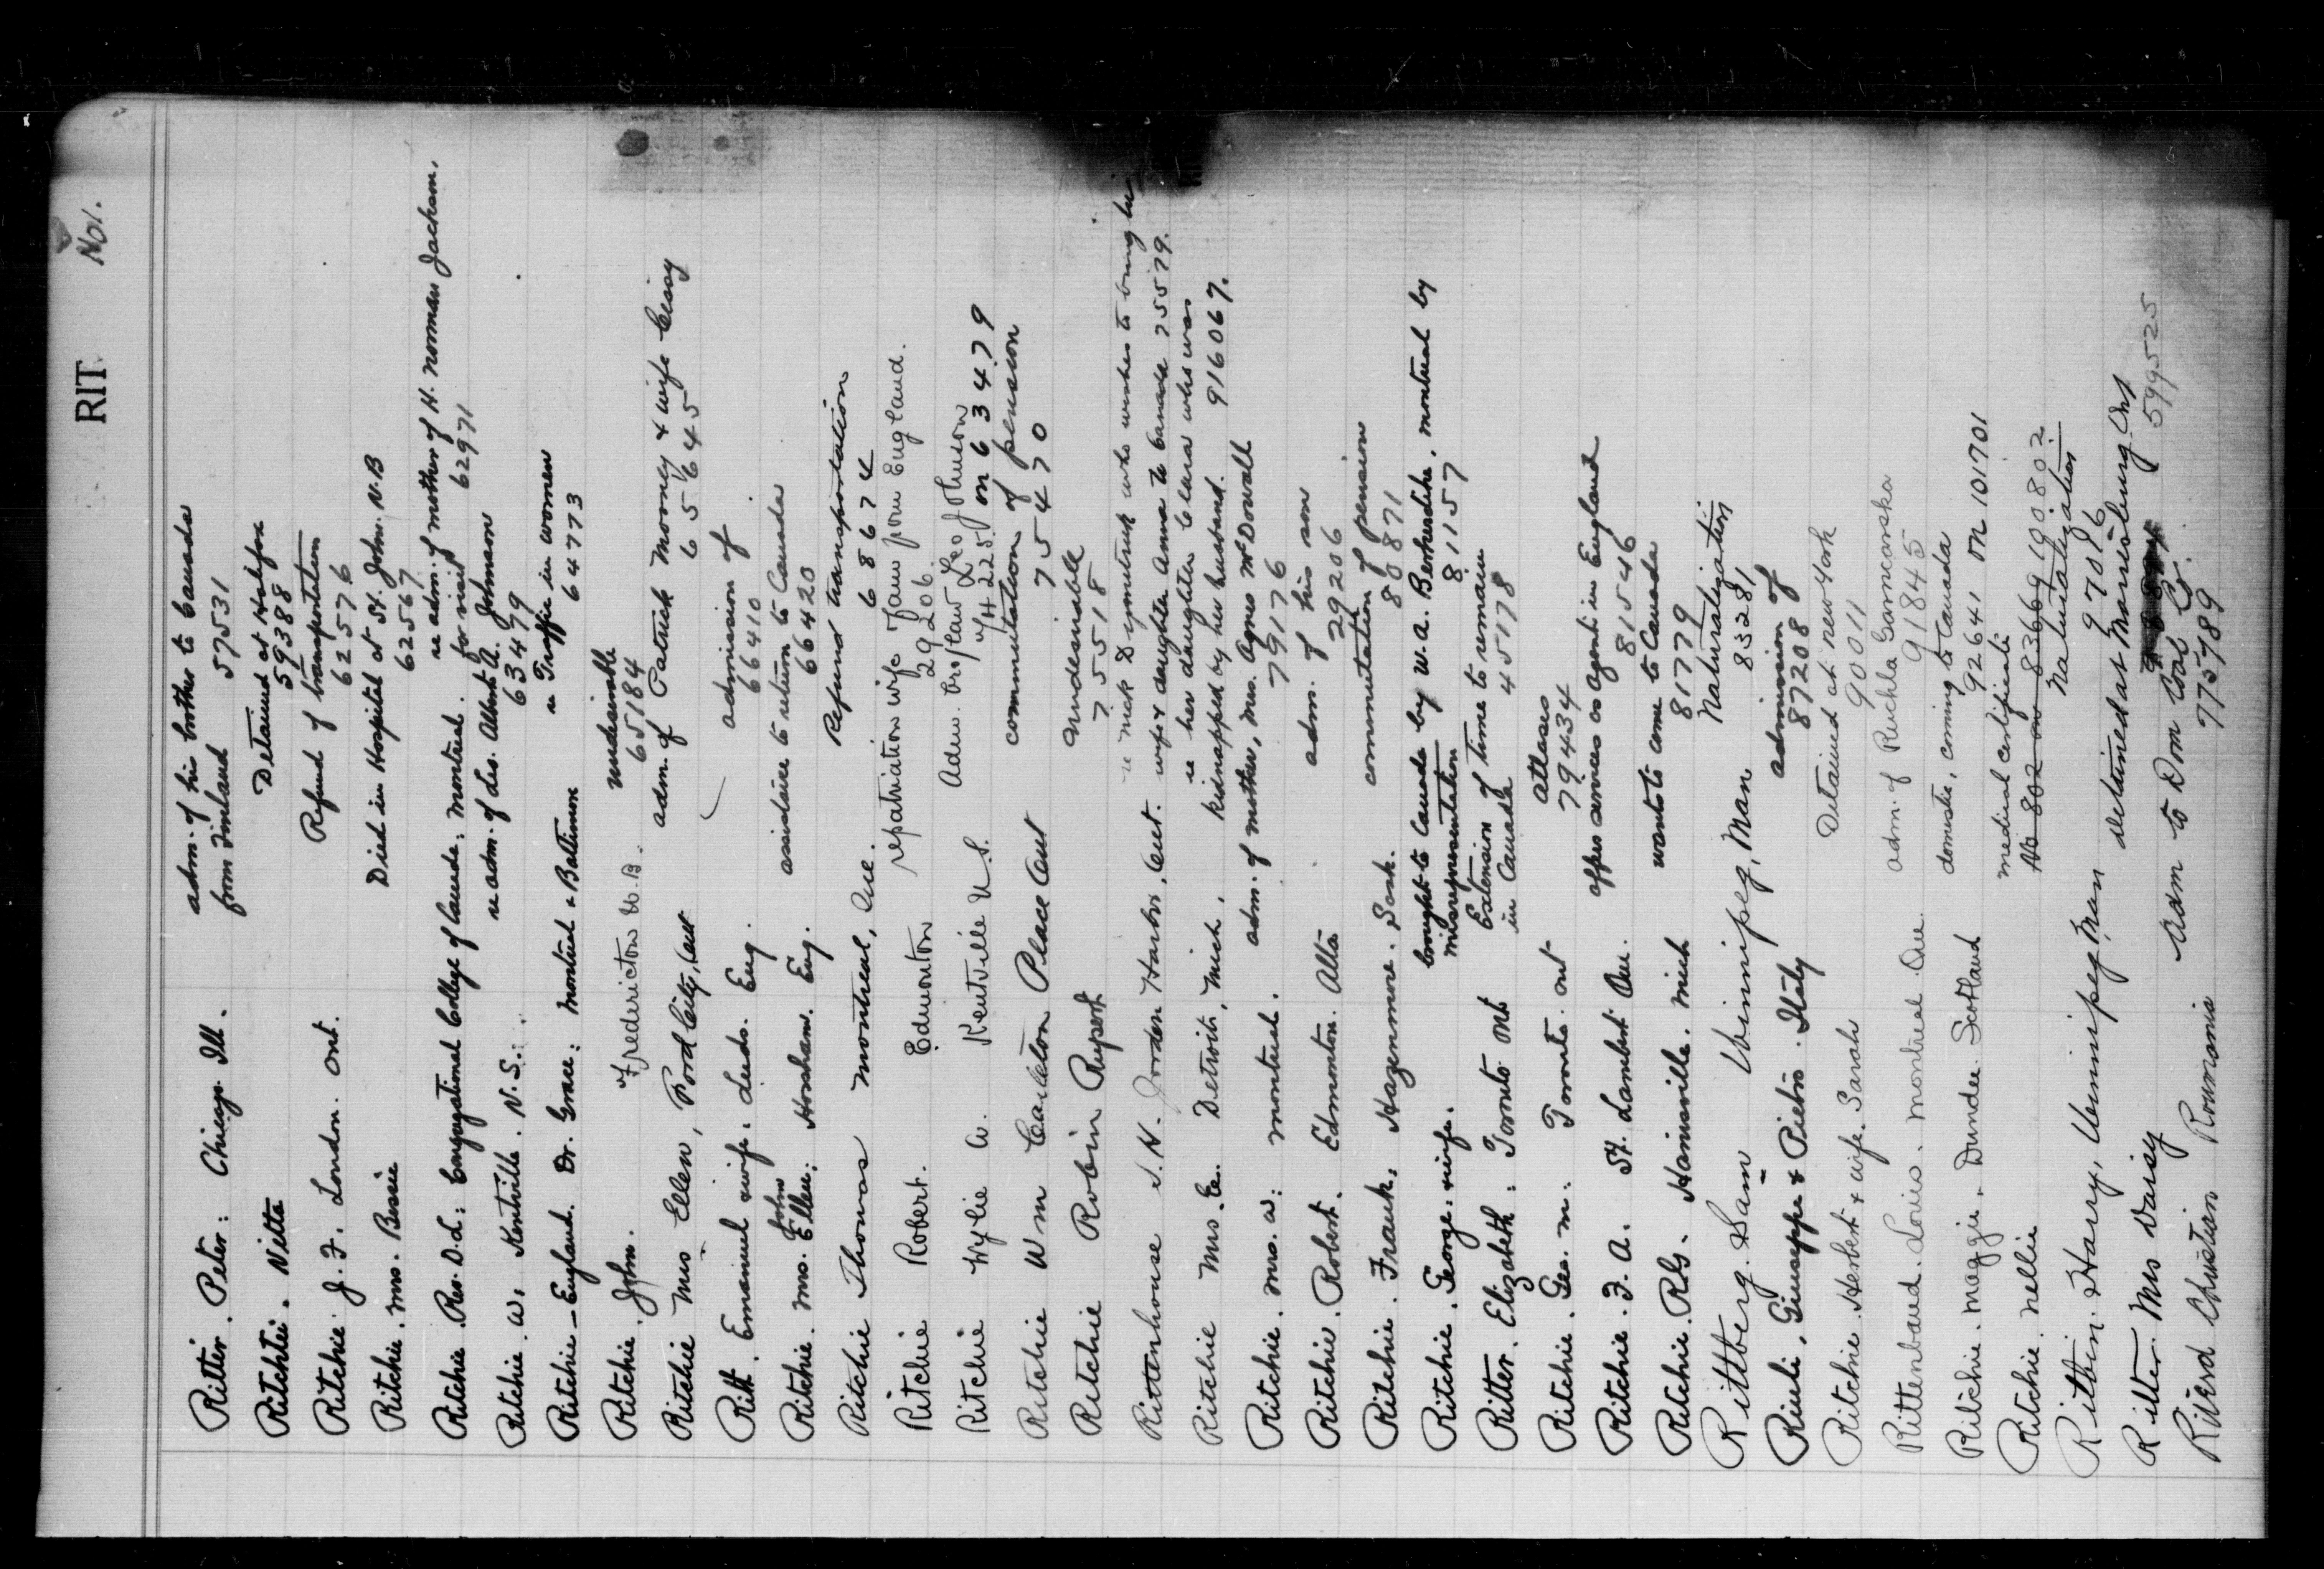 RIT No1.
Ritter. Peter: Chicago Ill. adm. of his brother to Canada
from Finland 57531
Ritchtei. Nitta Detained at Halifax
59388
Ritchie J. F. London. Ont. Refund of transportation
62576
Ritchie. Mrs. Bessie Died in Hospital at St. John. N.B
62567
Ritchie. Rev. D.L: Congregational College of Canada: Montreal. re adm. of mother of H. Norman Jackson.
for visit 62971
Ritchie. W. Kentville. N.S. re adm. of Les. Albert A. Johnson
63479
Ritchie - England. Dr. Grace: Montreal & Baltimore re Traffic in women
64773
Ritchie. John. Fredericton N.B. undesirable
65184
Ritchie Mrs Ellen, Ford City, Ont adm. of Patrick Mooney & wife Cissy
65645
Ritt. Emanuel & wife. Leeds. Eng. admission of
66410
Ritchie. Mrs. Ellen: John Horsham. Eng. assistance to return to Canada
66420
Ritchie Thomas Montreal, Que. Refund transportation
68674
Ritchie Robert. Edmonton repatriation wife & fam from England.
29206.
Ritchie Wylie A. Kentville N.S. Adm. Leo Johnson
on 63479
Ritchie Wm Carleton Place Ont commutation of pension
75470
Ritchie Robin Rupert undesirable
75518
Rittenhouse S. H. Jordan Harbor, Ont. re Nick Dzymtruk who wishes to bring his
wife & daughter Anna to Canada 75579.
Ritchie Mrs. E. Detroit, Mich. re her daughter Clara who was
kidnapped by her husband. 916067.
Ritchie. Mrs. W: Montreal. adm. of mother, Mrs. Agnes McDowall
79176
Ritchie. Robert. Edmonton. Alta adm. of his son
29206
Ritchie. Frank. Hazenmore. Sask. commutation of pension
80871
Ritchie. George: & wife. brought to Canada by W. A. Benherdike, Montreal by
misrepresentation 81157
Ritter. Elizabeth. Toronto Ont Extension of time to remain
in Canada 45178
Ritchie. Geo. M. Toronto. Ont Atlases
79434
Ritchie. F. A. St. Lambert Que. offers services as agent in England
81546
Ritchie. R G. Hainsville. Mich wants to come to Canada
81779
Rittberg. Sam Winnipeg, Man Naturalization
83281
Riuli, Giuseppe & Pietro. Italy admission of
87208
Ritchie. Herbert & wife. Sarah Detained at New York
90011
Rittenbaud. Louis. Montreal Que adm. of Ruchla Garncarska
91845
Ritchie. Maggie. Dundee Scotland domestic, coming to Canada
92641 on 101701
Ritchie. Nellie medical certificate
No 802 on 83669 190802
Ritbin. Harry, Winnipeg Man Naturalization
97086
Ritter Mrs Daisy detained at Morrisburg Ont
599525
Rivers Christian Roumania Adm to Dom Coal Co.
775789